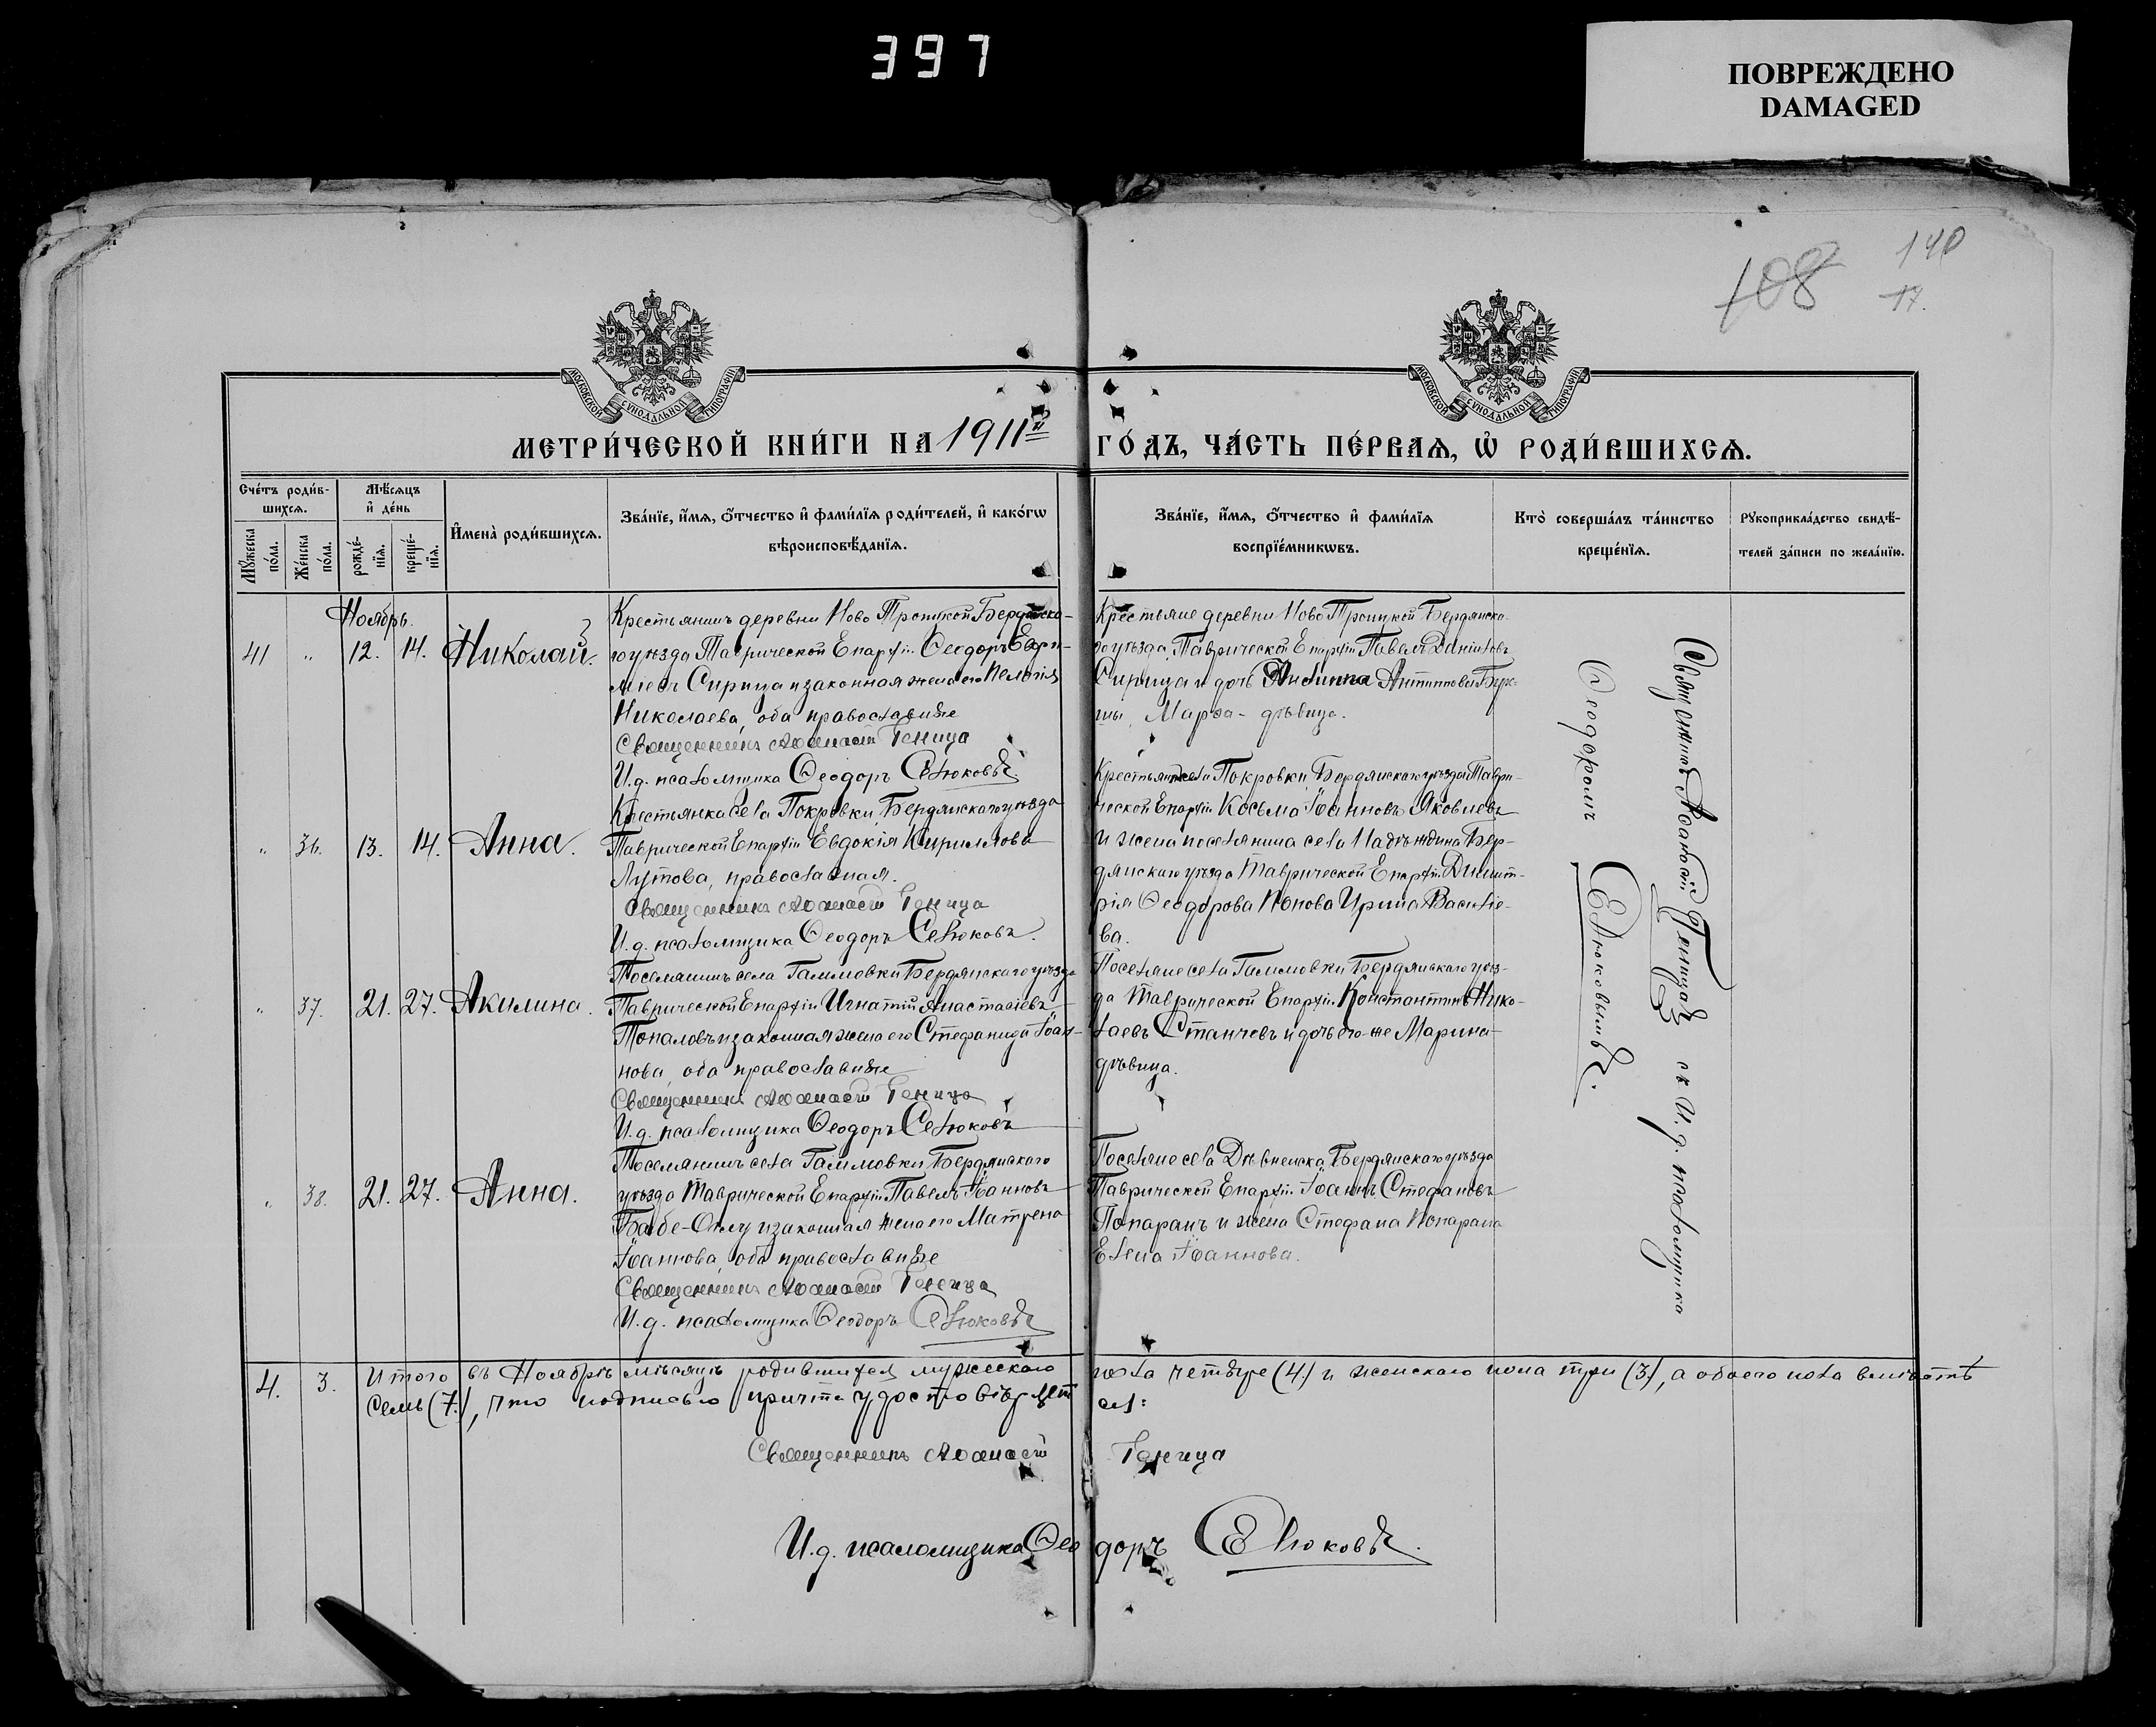 397
ПОВРЕЖДЕНО
DAMAGED
108
140
17.
МОСКОВСКОЙ СѴНОДАЛЬНОЙ ТИПОГРАФІИ
МОСКОВСКОЙ СѴНОДАЛЬНОЙ ТИПОГРАФІИ
МЕТРИ́ЧЕСКОЙ КНИ́ГИ НА 1911й ГО́ДЪ, ЧА́СТЬ ПЕ́РВАѦ, Ѡ҆ РОДИ́ВШИХСѦ.
Сче́тъ роди́в-
шихсѧ.
Мѣ́сѧцъ
и҆ де́нь
Мꙋ́жеска по́ла.
Же́нска по́ла.
рожде́-
нїѧ.
креще́-
нїѧ.
И҆мена̀ роди́вшихсѧ.
Зва́нїе, и҆́мѧ, ѻ҆́тчество и҆ фами́лїѧ роди́телей, и҆ како́гѡ
вѣроисповѣ́данїѧ.
Зва́нїе, и҆́мѧ, ѻ҆́тчество и҆ фами́лїѧ
воспрїе́мникѡвъ.
Кто̀ соверша́лъ та́инство
креще́нїѧ.
Рꙋкоприкла́дство свидѣ́-
телей за́писи по жела́нїю.
Ноябрь.
41 " 12. 14. Николай.
Крестьянинъ деревни Ново Троицкой Бердянска-
го уѣзда Таврической Епархіи Ѳеодоръ Евѳи-
міевъ Сирица и законная жена его Пелагія
Николаева, оба православные
Священникъ Аѳанасій Геница
И.д. псаломщика Ѳеодоръ Селюковъ
Крестьяне деревни Ново Троицкой Бердянска-
го уѣзда, Таврической Епархіи Павелъ Даніиловъ
Сирица и дочь Антиппова
Марѳа - дѣвица.
" 36. 13. 14. Анна.
Крестьянка села Покровки, Бердянскаго уѣзда
Таврической Епархіи Евдокія Кириллова
Лутова, православная.
Священникъ Аѳанасій Геница
И.д. псаломщика Ѳеодоръ Селюковъ.
Крестьянинъ села Покровки, Бердянскаго уѣзда Таври-
ческой Епархіи Косьма Іоанновъ Яковлевъ
и жена поселянина села Надѣждина Бер-
дянскаго уѣзда Таврической Епархіи Димит-
рія Ѳеодорова Попова Ирина Василіе-
ва.
" 37. 21. 27. Акилина.
Поселянинъ села Гаммовки Бердянскаго уѣзда
Таврической Епархіи Игнатій Анастасіевъ
Топаловъ и законная жена его Стефанида Іоан-
нова, оба православные
Священникъ Аѳанасій Геница
И.д. псаломщика Ѳеодоръ Селюковъ
Поселяне села Гаммовки Бердянскаго уѣз-
да Таврической Епархіи Константинъ Нико-
лаевъ Станчевъ и дочь его-же Марина
дѣвица.
" 38. 21. 27. Анна.
Поселянинъ села Гаммовки Бердянскаго
уѣзда Таврической Епархіи Павелъ Іоанновъ
Бабе-Оглу и законная жена его Матрена
Іоаннова, оба православные
Священникъ Аѳанасій Геница
И.д. псаломщика Ѳеодоръ Селюковъ
Поселяне села Бердянскаго уѣзда
Таврической Епархіи Іоаннъ Стефановъ
Попаранъ и жена Стефана Попарана
Елена Іоаннова.
Священникъ Аѳанасій Геница съ И.д. псаломщика
Ѳеодоромъ Селюковымъ.
4. 3. Итого въ Ноябрѣ мѣсяцѣ родившихся мужескаго пола четыре (4) и женскаго пола три (3), а обоего пола вмѣстѣ
семь (7), что подписью причта удостовѣряется:
Священникъ Аѳанасій Геница
И.д. псаломщика Ѳеодоръ Селюковъ.